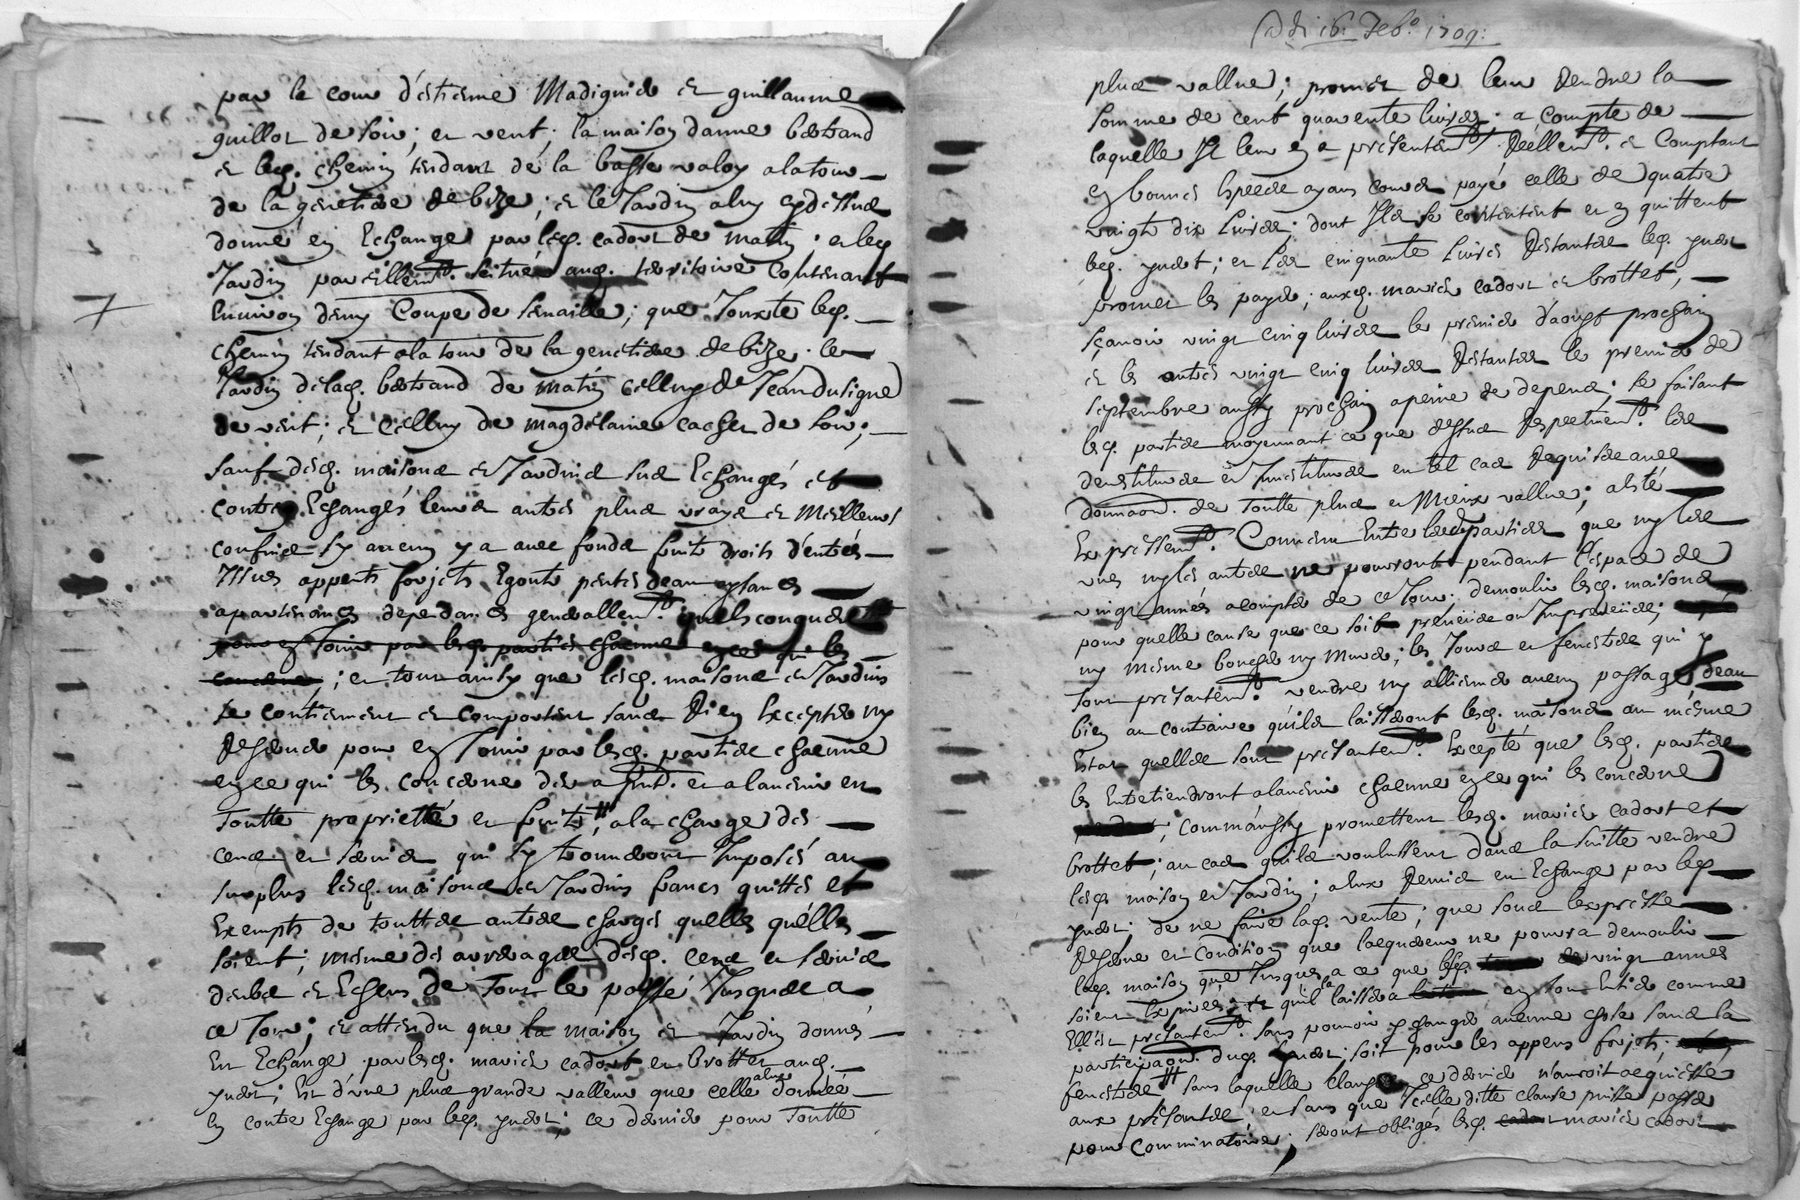 par la cour d'estienne Madignier et guillaume
guillot de soir; et vent; la maison danne bertrand
et led. chemin tendant de la basse valoy a la tour
de la genetière de bize; et le Jardin a luy cydessus
donné en Echange par lesd. cadort de matin; et led.
Jardin pareillemt. scitué aud. territoire contenant
Environ demy Coupe de semaille; que Jouxte led.
chemin tendant a la tour de la genetière de bize. le
Jardin de lad. bertrand de matin celluy de Jean dusigne
de vent; et Celluy de magdelaine cacher de soir;
sauf desd. maisons et Jardins sus Echangés et
contre Echangés leurs autres plus vrays et Meilleurs
confins sy aucun y a avec fonds fruits droits d'entrées
Issues appents forjets Egouts pentes deau aysances
apartenances dependances generallemt. quelsconques
pour en Jouir par lesd. parties chacune en ce qui les
concerne; et tout ainsy que lesd. maisons et Jardins
se contiennent et comportent sans Rien Excepter ny
Reserver pour en Jouir par lesd. parties chacune
en ce qui les concerne des a pnt. et a lavenir en
toutte proprietté et fruits, a la charge des
cens et servis qui sy trouveront Imposés au
surplus lesd. maisons et Jardins francs quittes et
Exempts de touttes autres charges quelles quelles
soient; mesme des arrerages desd. cens et servis
deubs et Echeus de Tout le passé Jusques a
ce Jour; et attendu que la maison et Jardin donnés
En Echange par lesd. mariés cadort et Brottet aud.
yudet; Est d'une plus grande valleur que celle a luy donnée
En contre Echange par led. yudet; ce dernier pour Toutte
16 Feb. 1709.
plus vallue; promet de leur Rendre la
somme de cent quarente livres a compte de
laquelle Il leur en a presentemt. Reellemt. et Comptant
en bonnes Especes ayans cours payé celle de quatre
vingt dix livres; dont Ils se contentent et en quittent
led. yudet; et les cinquante Livres Restantes led. yudet
promet les payer; auxd. mariés cadort et brottet,
sçavoir vingt cinq livres le premier d'aoust prochain
et les autres vingt cinq livres Restantes le premier de
septembre aussy prochain apeine de depens; se faisant
lesd. parties moyennant ce que dessus Respectivemt. les
devestitures et Investitures en tel cas Requises avec
donnaon. de Toutte plus et Mieux vallue; a esté
Expressemt. Convenu Entre lesd. parties que ny les
uns ny les autres ne pourront pendant l'espace de
vingt années acompter de ce Jour demoulir lesd. maisons
pour quelle cause que ce soit preveüe ou Impreveüe;
ny mesme boucher ny Murer; les Jours et fenestres qui y
sont presentemt. vendre ny alliener aucun passage deau
bien au contraire quils laisseront lesd. maisons au mesme
Estat quelles sont presentemt. Excepté que lesd. parties
les Entretiendront a lavenir chacune en ce qui les concerne
; comm'aussy promettent lesd. mariés cadort et
brottet; au cas quils voulussent dans la suitte vendre
lesd. maison et Jardin; a eux Remis en Echange par led.
yudet; de ne faire lad. vente; que sous lexpresse
Reserve et condition que lacquereur ne pourra demoulir
lad. maison que Jusques a ce que lesd. vingt années
soient Expirées; et quil la laissera en son Entier comme
Ell'est presentemt. sans pouvoir y changer aucune chose sans la
participaon. dud. yudet; soit pour les appens forjets;
fenestres sans laquelle clause ce dernier n'auroit acquiessé
aux presentes et sans que Jcelle ditte clause puisse passer
pour Comminatoire; seront obligés lesd. mariés cadort